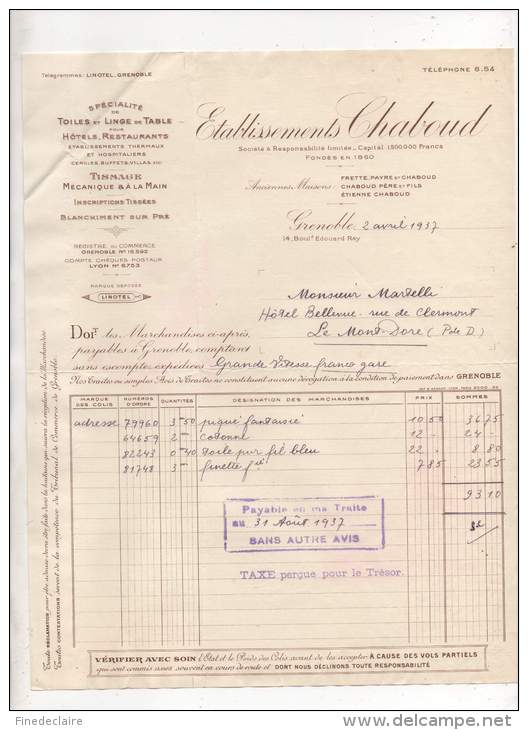 Télégrammes: LINOTEL_GRENOBLE
TÉLÉPHONE 6.54
SPÉCIALITÉ
DE
TOILES ET LINGE DE TABLE
POUR
HÔTELS, RESTAURANTS
ÉTABLISSEMENTS THERMAUX
ET HOSPITALIERS
CERCLES, BUFFETS, VILLAS, ETC.
TISSAGE
MÉCANIQUE & À LA MAIN
INSCRIPTIONS TISSÉES
BLANCHIMENT SUR PRÉ
REGISTRE DU COMMERCE
GRENOBLE Nº 16.592
COMPTE CHÈQUES POSTAUX
LYON Nº 6753
MARQUE DÉPOSÉE
LINOTEL
Etablissements Chaboud
Société à Responsabilité limitée_ Capital: 1.500.000 Francs
FONDÉS EN 1860
Anciennes Maisons:
FRETTE, PAYRE ET CHABOUD
CHABOUD PÈRE ET FILS
ÉTIENNE CHABOUD
Grenoble, 2 avril 1937
14, Boulᵈ Edouard Rey
Monsieur Martelli
Hôtel Bellevue - rue de Clermont
Le Mont-Dore (P. de D.)
DOIT les Marchandises ci-après,
payables à Grenoble, comptant
sans escompte, expédiées Grande Vitesse franco gare
Nos Traites ou simples Avis de Traites ne constituent aucune dérogation à la condition de paiement dans GRENOBLE
MARQUE DES COLIS NUMÉROS D'ORDRE QUANTITÉS DÉSIGNATION DES MARCHANDISES PRIX SOMMES
adresse 79960 3 50 piqué fantaisie 10 50 36 75
64659 2 cotonne 12 - 24 -
82243 0 40 toile pur fil bleu 22 8 80
81748 3 finette 7 85 23 55
93 10
Payable en ma Traite
au 31 Août 1937
SANS AUTRE AVIS
TAXE perçue pour le Trésor.
Toute RÉCLAMATION pour être admise devra être faite dans la huitaine qui suivra la réception de la Marchandise
Toutes CONTESTATIONS seront de la compétence du Tribunal de Commerce de Grenoble.
VÉRIFIER AVEC SOIN l'État et le Poids des Colis avant de les accepter À CAUSE DES VOLS PARTIELS
qui sont commis assez souvent en cours de route et DONT NOUS DÉCLINONS TOUTE RESPONSABILITÉ
Finedeclaire
delcampe.net